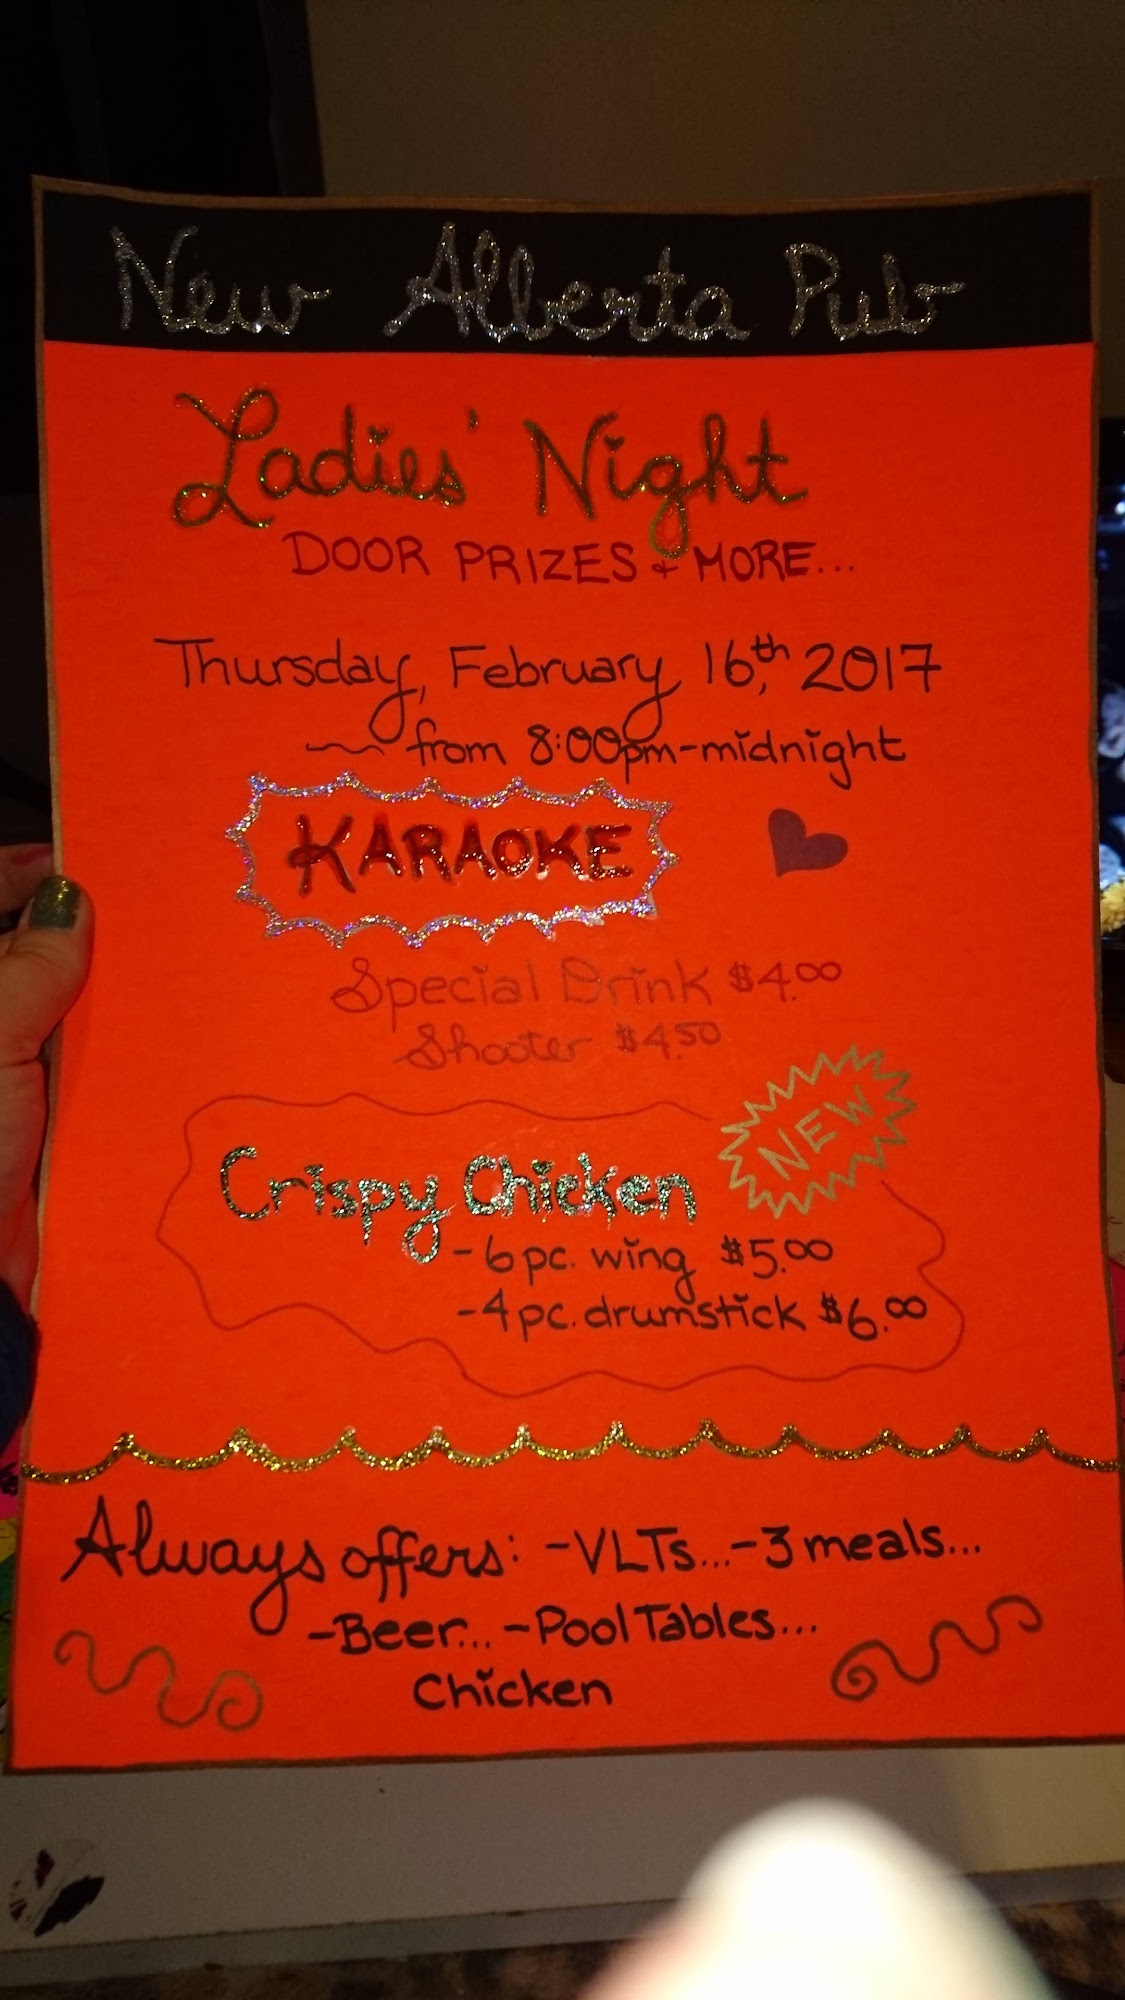 New Alberta Pub
Ladies' Night
DOOR PRIZES + MORE...
Thursday, February 16th, 2017
from 8:00pm-midnight
KARAOKE
Special Drink $4.00
Shooter $4.50
NEW
Crispy Chicken
-6 pc. wing $5.00
-4 pc. drumstick $6.00
Always offers: -VLTs...-3 meals...
-Beer...-Pool Tables...
Chicken